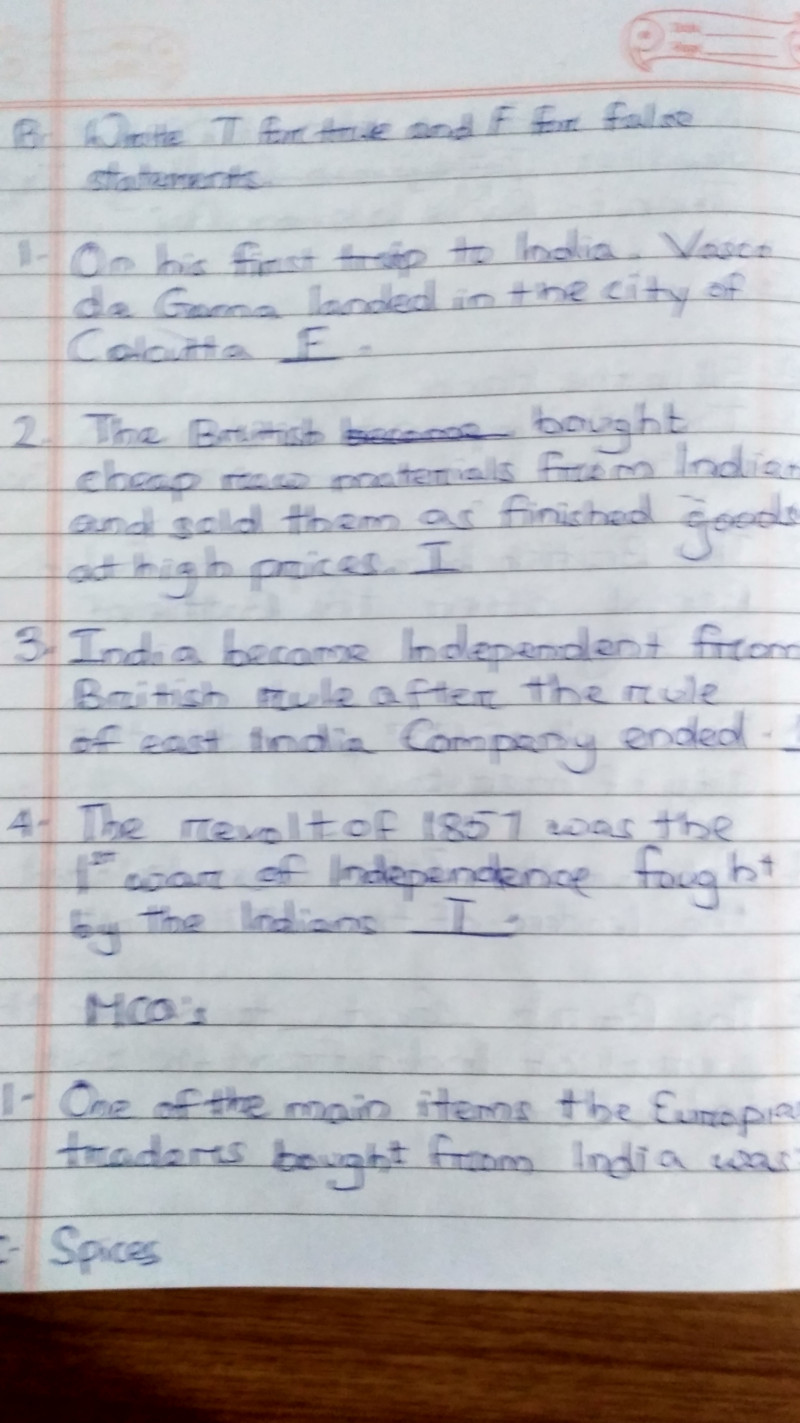 B. Write T for true and F for false
statements.
1- On his first trip to India. Vasco
da Gama landed in the city of
Calcutta F.
2. The British bought
cheap raw materials from Indian
and sold them as finished goods
at high prices. T
3. India became Independent from
British rule after the rule
of east India Company ended.
4- The revolt of 1857 was the
1st war of Independence fought
by the Indians T.
MCQ's
1- One of the main items the Europia
traders bought from India was
c- Spices